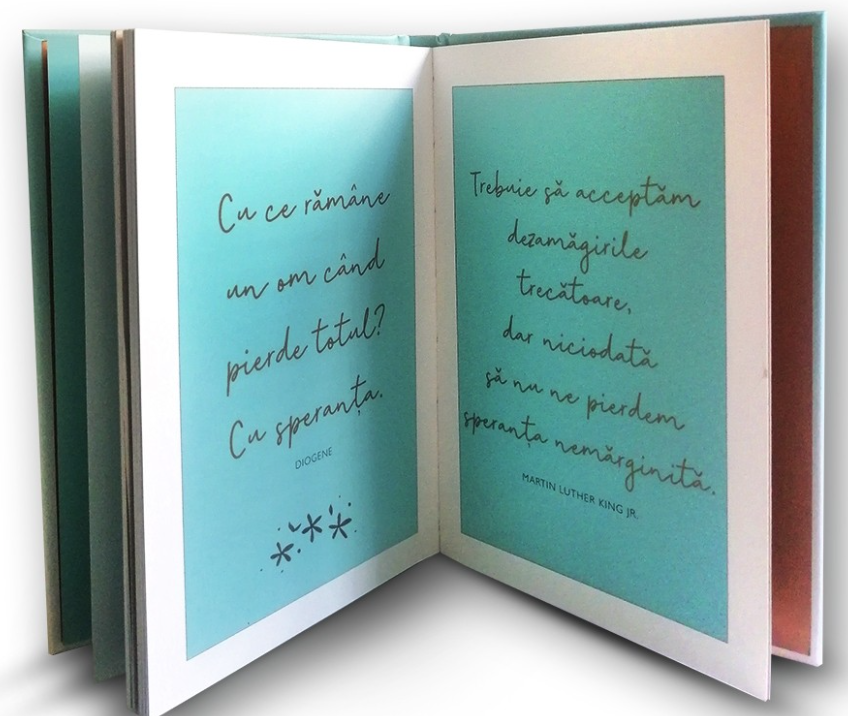 Cu ce rămâne
un om când
pierde totul?
Cu speranța.
DIOGENE
Trebuie să acceptăm
dezamăgirile
trecătoare,
dar niciodată
să nu ne pierdem
speranța nemărginită.
MARTIN LUTHER KING JR.